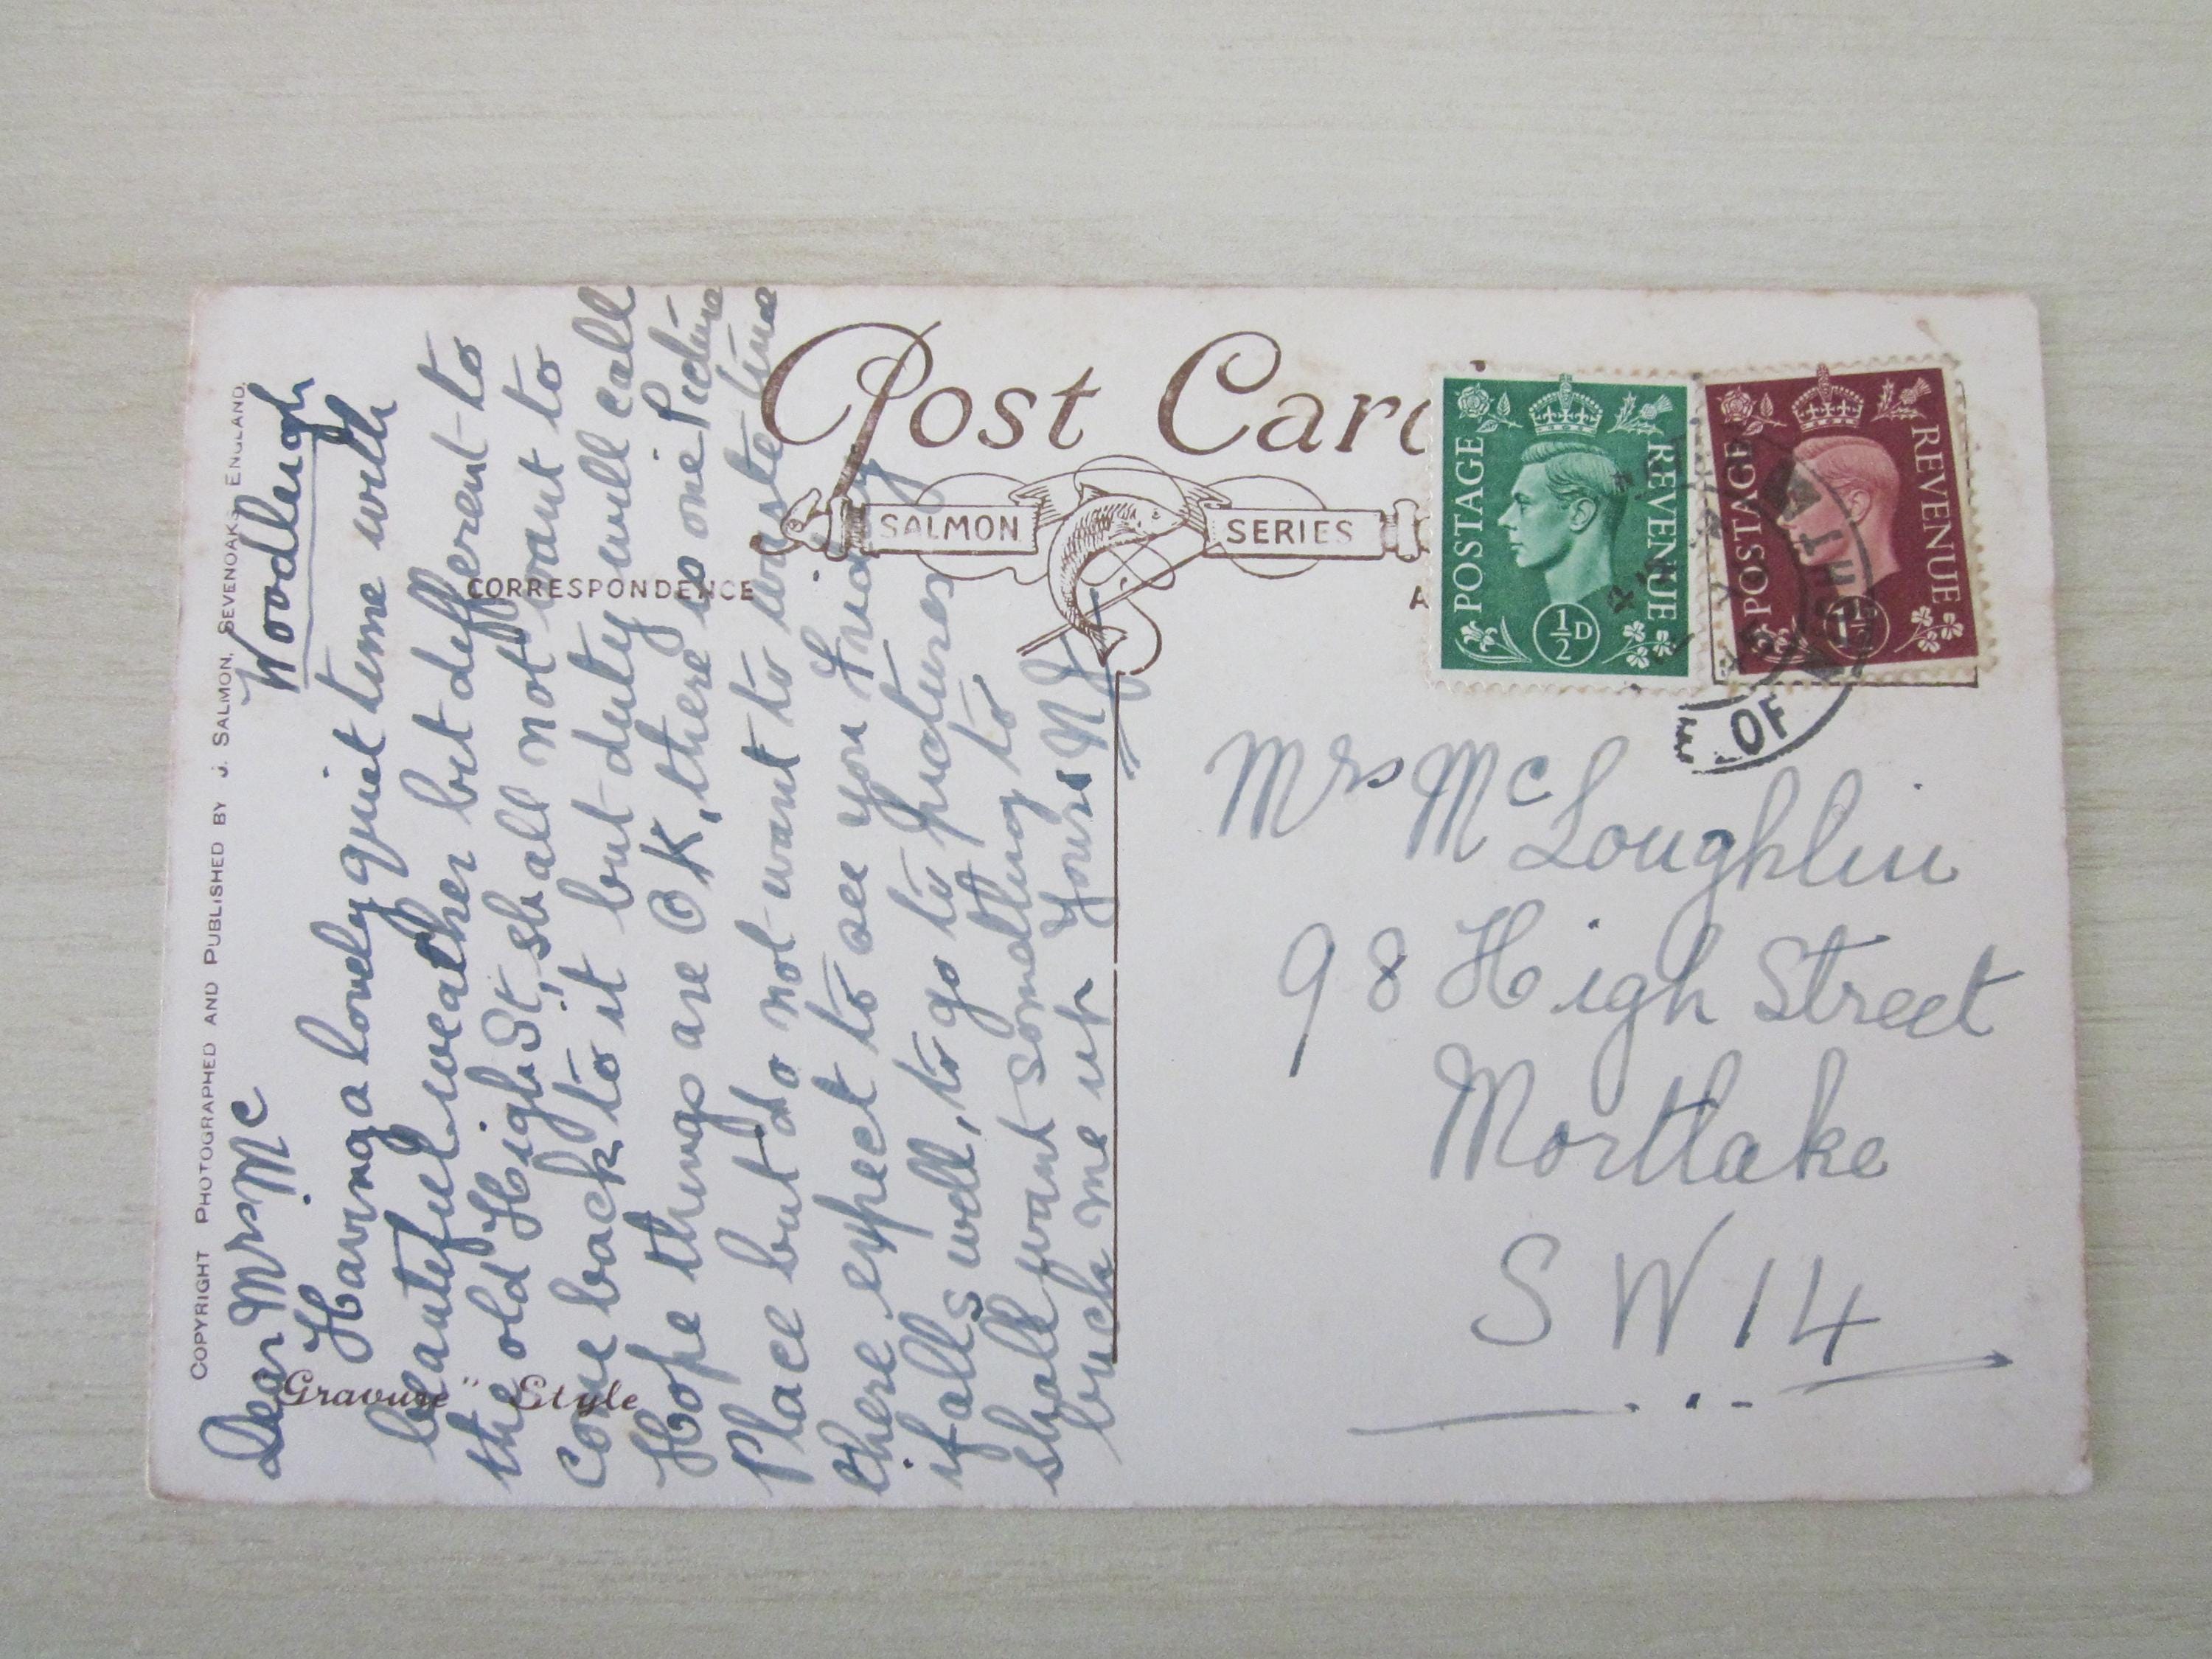 COPYRIGHT PHOTOGRAPHED AND PUBLISHED BY J. SALMON, SEVENOAKS, ENGLAND.
Woodleigh
Dear Mrs Mc
Having a lovely quiet time with
beautiful weather but different to
the old High St, shall not want to
come back to it but duty will call
Hope things are OK, there is one Picture
Place but do not want to waste time
there expect to see you Friday
if alls well, to go to pictures
shall want something to
buck me up Yours
"Gravure" Style
CORRESPONDENCE
Post Card
SALMON SERIES
A
POSTAGE REVENUE
1/2 D
POSTAGE REVENUE
OF
Mrs McLoughlin
98 High Street
Mortlake
SW14